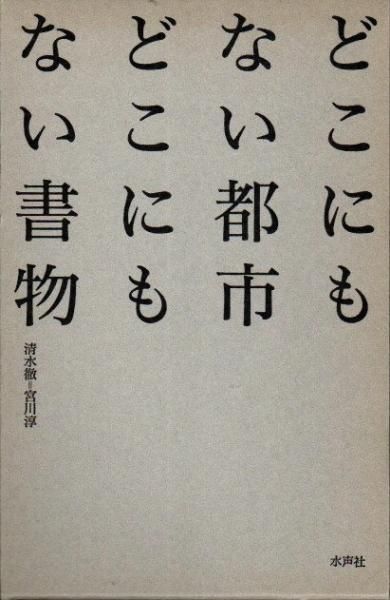 どこにも
ない都市
どこにも
ない書物
清水徹=宮川淳
水声社